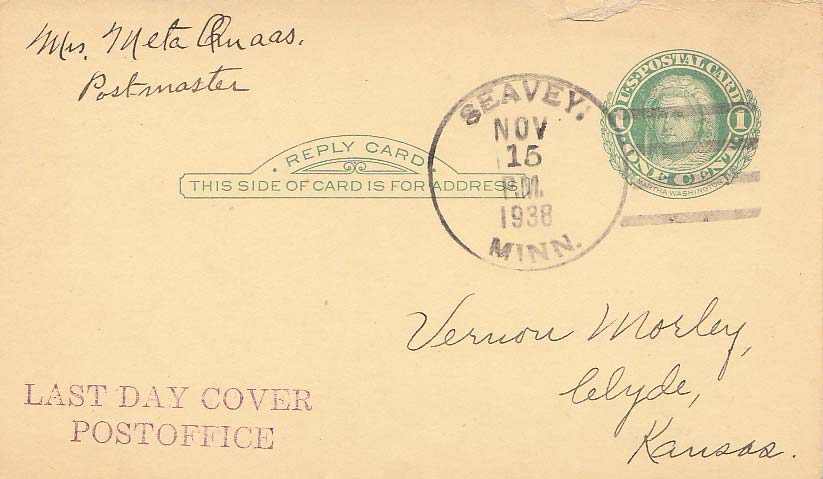 Mrs. Meta Quaas.
Postmaster
REPLY CARD
THIS SIDE OF CARD IS FOR ADDRESS
SEAVEY.
NOV
15
P.M.
1938
MINN.
U.S. POSTAL CARD
1 1
ONE CENT
MARTHA WASHINGTON
Vernon Morley,
Clyde,
Kansas.
LAST DAY COVER
POSTOFFICE